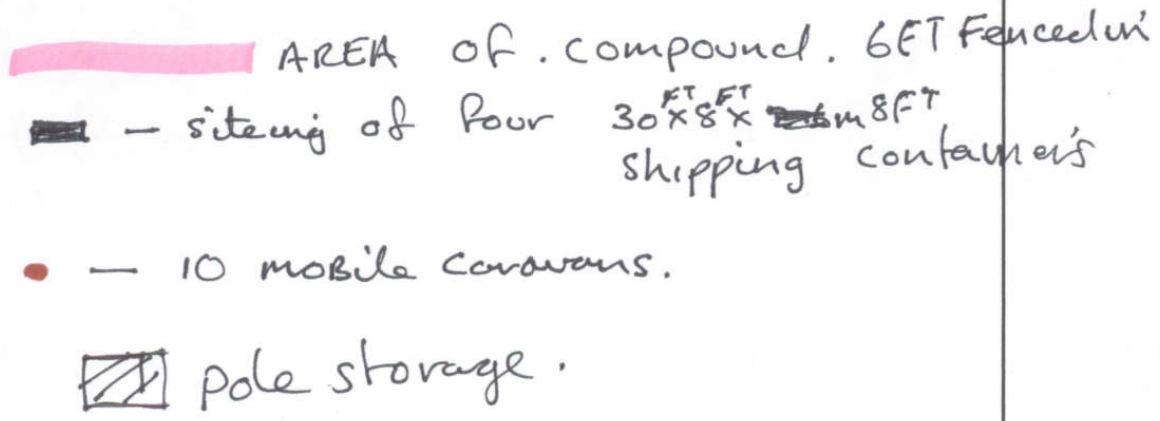 AREA of. compound. 6FT Fenced in
- siteing of four 30FTx8FTx 8FT
shipping container's
- 10 moBile caravans.
pole storage.